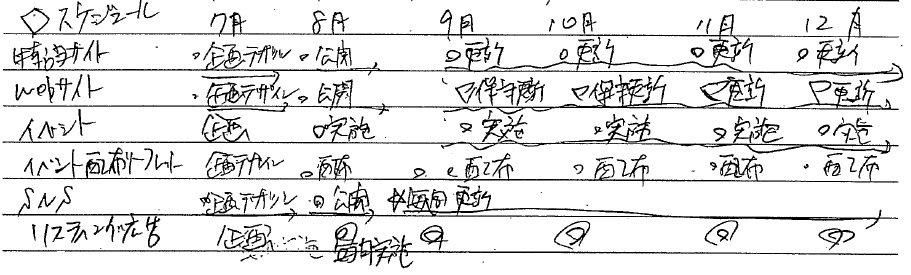 ◇スケジュール 7月 8月 9月 10月 11月 12月
サイト 企画デザイン 公開 更新 更新 更新 更新
Webサイト 企画デザイン 公開 保守更新 保守更新 更新 更新
イベント 企画 実施 実施 実施 実施 実施
イベント配布リーフレット 企画デザイン 配布 配布 配布 配布 配布
SNS 企画デザイン 公開 毎日更新
リスティング広告 企画 実施